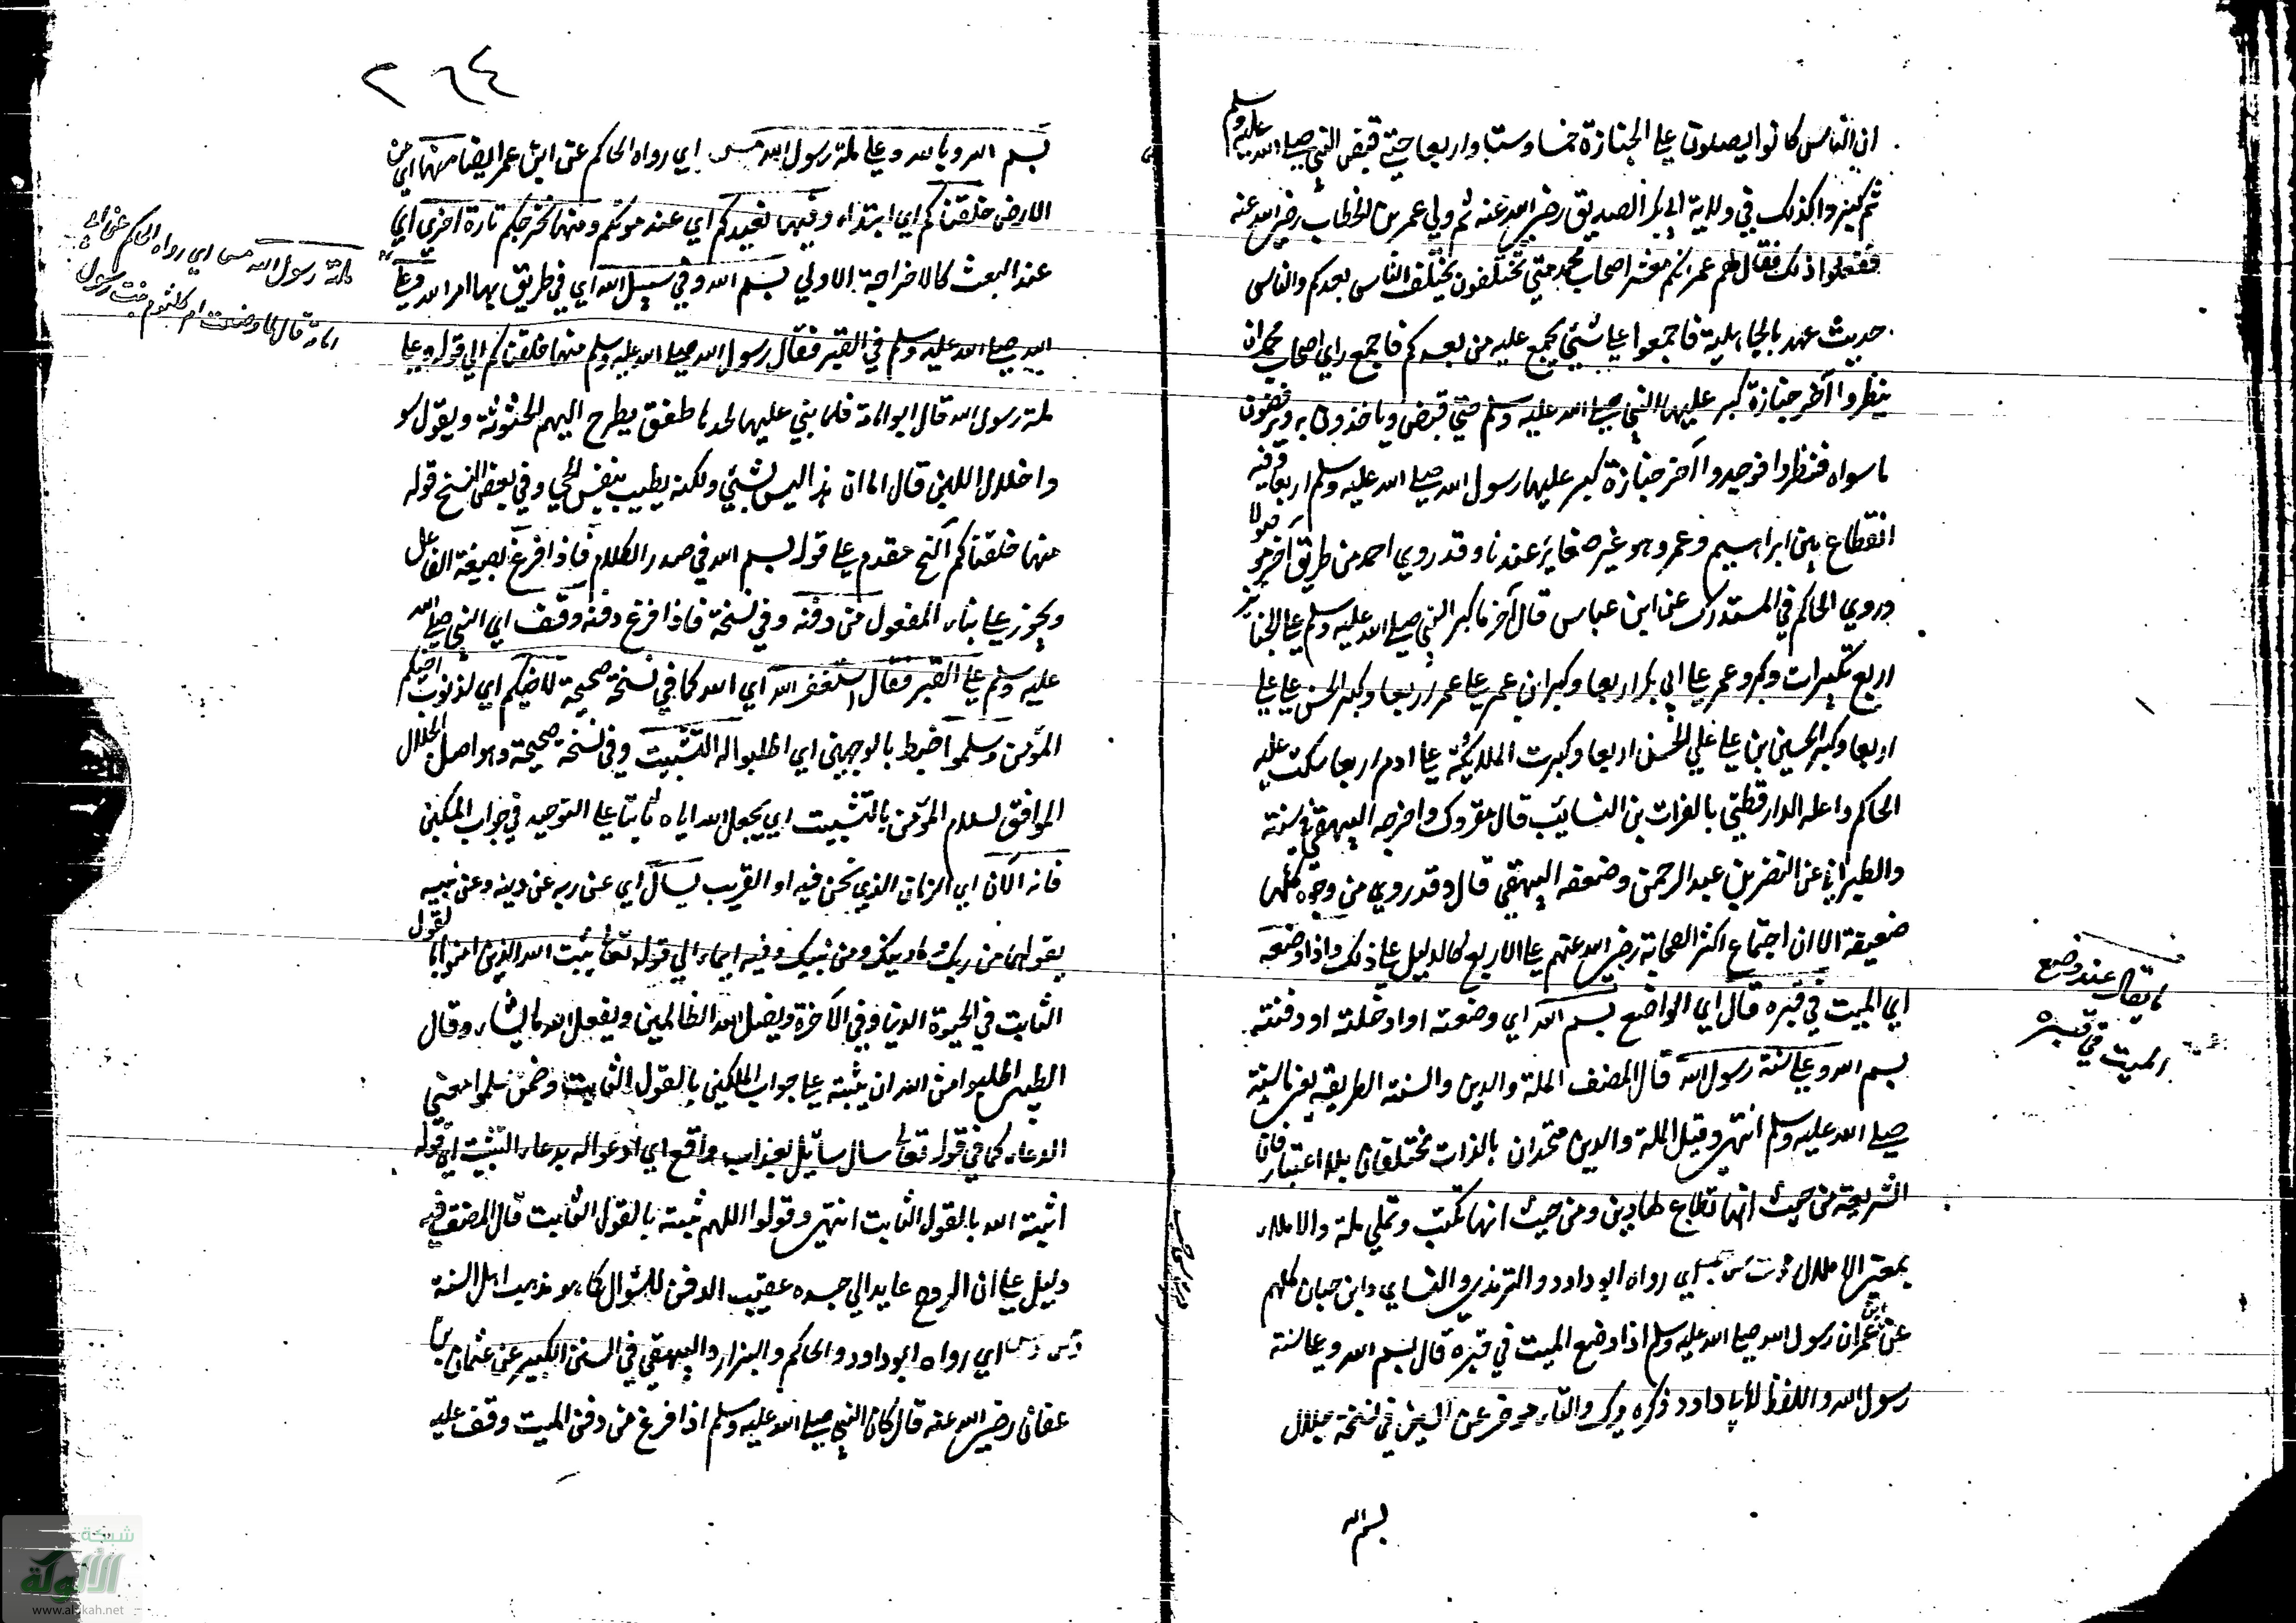 ان الناس كانوا يصلون على الجنازة خمسا وستا واربعا حتى قبض النبي صلى الله عليه وسلم
ثم كبروا كذلك في ولاية ابي بكر الصديق رضي الله عنه ثم ولي عمر بن الخطاب رضي الله عنه
ففعلوا ذلك فقال لهم عمر انكم معشر اصحاب محمد متى تختلفون يختلف الناس بعدكم والناس
حديث عهد بالجاهلية فاجمعوا على شئ يجمع عليه من بعدكم فاجمع راي اصحاب محمد ان
ينظروا آخر جنازة كبر عليها النبي صلى الله عليه وسلم حتى قبض وياخذون به ويرفضون
ما سواه فنظروا فوجدوا آخر جنازة كبر عليها رسول الله صلى الله عليه وسلم اربعا وفيه
انقطاع بين ابراهيم وعمر وهو غير ضائر عندنا وقد روي احمد من طريق آخر موصولا
وروي الحاكم في المستدرك عن ابن عباس قال آخر ما كبر النبي صلى الله عليه وسلم على الجنائز
اربع تكبيرات وكبر عمر على ابي بكر اربعا وكبر ابن عمر على عمر اربعا وكبر الحسن على علي
اربعا وكبر الحسين بن علي على الحسن اربعا وكبرت الملائكة على ادم اربعا سكت عليه
الحاكم واعله الدارقطني بالفرات بن السائب قال متروك واخرجه البيهقي في سننه
والطبراني عن النضر بن عبد الرحمن وضعفه البيهقي قال وقد روي من وجوه كلها
ضعيفة الا ان اجتماع اكثر الصحابة رضي الله عنهم على الاربع كالدليل على ذلك واذا وضعه
اي الميت في قبره قال اي الواضع بسم الله اي وضعته او ادخلته او دفنته
بسم الله وعلى سنة رسول الله قال المصنف الملة والدين والسنة الطريقة يعني سنة
صلى الله عليه وسلم انتهى وقيل الملة والدين متحدان بالذات مختلفان بالاعتبار فان
الشريعة من حيث انها تطاع لها دين ومن حيث انها تكتب وتملي ملة والاملاء
بمعنى الاملال د ت س حب اي رواه ابو داود والترمذي والنساي وابن حبان كلهم
عن ابن عمر ان رسول الله صلى الله عليه وسلم اذا وضع الميت في قبره قال بسم الله وعلى سنة
رسول الله واللفظ لابي داود ذكره ميرك والتاء مؤخر عن السين في نسخة جلال
بسم الله
ما يقال عند وضع
الميت في قبره
٢٦٤
بسم الله وبالله وعلى ملة رسول الله مس اي رواه الحاكم عن ابن عمر ايضا منها اي من
الارض خلقناكم اي ابتداء وفيها نعيدكم اي عند موتكم ومنها نخرجكم تارة اخرى اي
عند البعث كالاخراجة الاولي بسم الله وفي سبيل الله اي في طريق بها امر الله وعلى
ملة رسول الله مس اي رواه الحاكم عن ابي
امامة قال لما وضعت ام كلثوم بنت رسول
الله صلى الله عليه وسلم في القبر فقال رسول الله صلى الله عليه وسلم منها خلقناكم الي قوله وعلى
ملة رسول الله قال ابو امامة فلما بني عليها لحدها طفق يطرح اليهم الجثوثة ويقول سو
وا خلال اللبن قال اما ان هذا ليس بشئي ولكنه يطيب بنفس الحي وفي بعض النسخ قوله
منها خلقناكم الخ مقدم على قوله بسم الله في صدر الكلام فاذا فرغ بصيغة الفاعل
ويجوز على بناء المفعول من دفنه وفي نسخة فاذا فرغ دفنه وقف اي النبي صلى الله
عليه وسلم على القبر فقال استغفر الله اي الله كما في نسخة صحيحة لاخيكم اي لذنوب اخيكم
المؤمن وسلموا ضبط بالوجهين اي اطلبوا له التثبيت وفي نسخة صحيحة وهو اصل الجلال
الموافق لسلاح المؤمن بالتثبيت اي يجعل الله اياه ثابتا على التوحيد في جواب الملكين
فانه الآن اي الزمان الذي نحن فيه او القريب يسال اي عن ربه عن دينه وعن نبيه
يقولان من ربك وما دينك ومن نبيك وفيه ايماء الي قوله تعالى يثبت الله الذين امنوا بالقول
الثابت في الحيوة الدنيا وفي الآخرة ويضل الله الظالمين ويفعل الله ما يشاء وقال
الطيبي اطلبوا من الله ان يثبته على جواب الملكين بالقول الثابت وضمن سلوا معنى
الدعاء كما في قوله تعالى سال سائل بعذاب واقع اي ادعوا له بدعاء التثبيت اي قوله
اثبته الله بالقول الثابت انتهى وقولوا اللهم ثبته بالقول الثابت قال المصنف فيه
دليل على ان الروح عايد الي جسده عقيب الدفن للسؤال كما هو مذهب اهل السنة
اي رواه ابو داود والحاكم والبزار والبيهقي في السنن الكبير عن عثمان بن
عفان رضي الله عنه قال كان النبي صلى الله عليه وسلم اذا فرغ من دفن الميت وقف عليه
شبكة
الألوكة
www.alukah.net